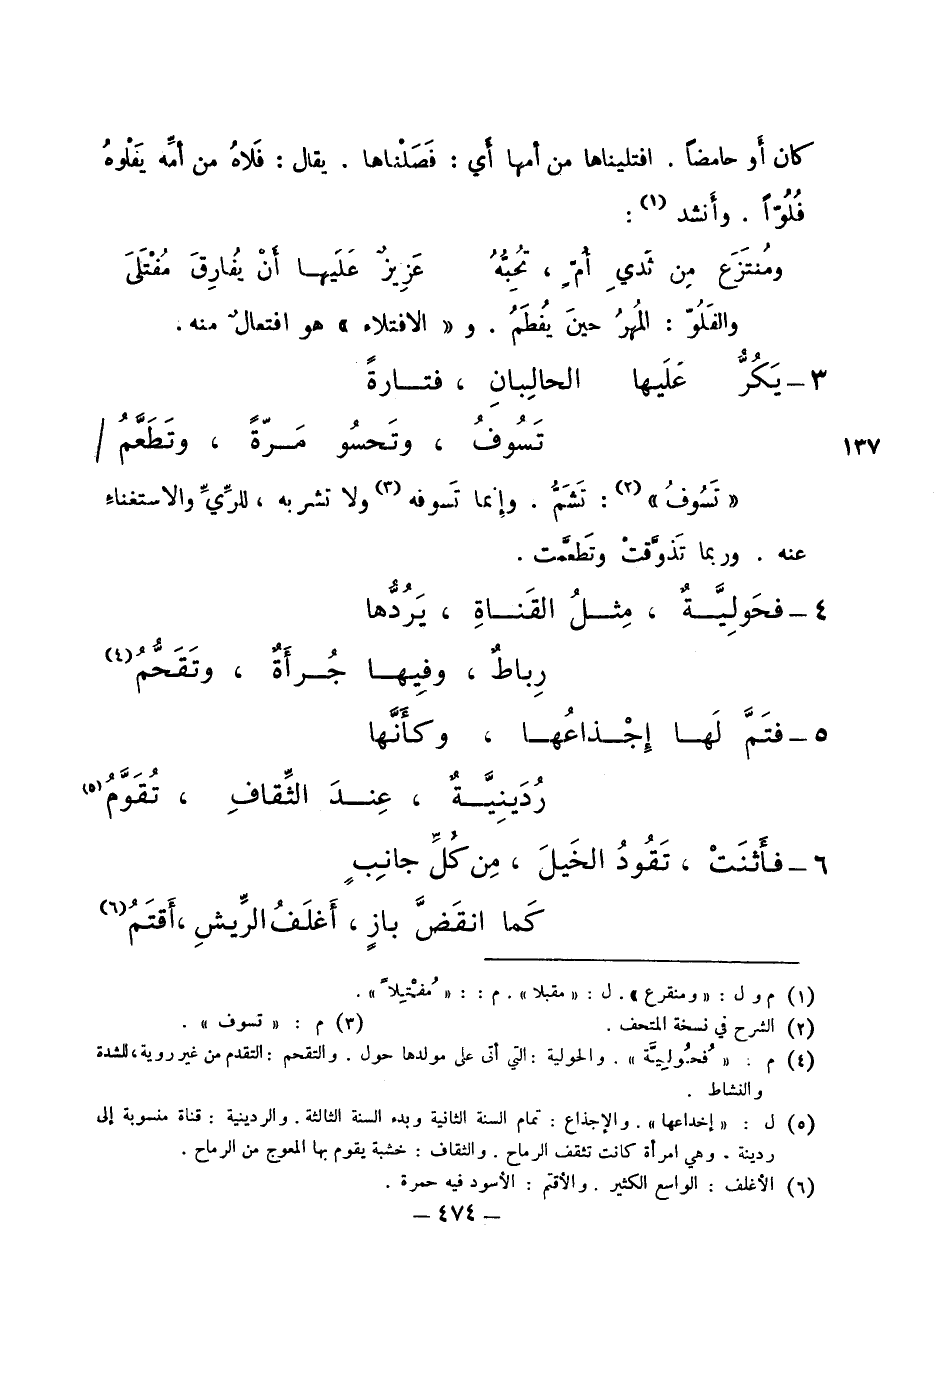 كان أَو حامضاً . افتليناها من أمها أَي : فَصَلْناها . يقال : فَلاهُ من أمِّه يَفْلوهُ
فُلُوّاً . وأَنشد (١) :
ومُنتَزَعٍ مِن ثَديِ أُمٍّ ، تُحِبُّهُ عَزِيزٌ عَلَيها أَنْ يُفارِقَ مُفْتَلَى
والفَلُوّ : المُهرُ حينَ يُفطَمُ . و « الافتلاء » هو افتعالٌ منه .
٣ – يَكُرُّ عَلَيها الحالِبانِ ، فتارةً
١٣٧ تَسُوفُ ، وتَحسُو مَرّةً ، وتَطَعَّمُ /
« تَسُوفُ » (٢) : تَشَمُّ . وإنما تَسوفه (٣) ولا تشربه ، للرِّيِّ والاستغناءِ
عنه . وربما تَذوَّقتْ وتَطعَّمت .
٤ – فحَولِيَّةٌ ، مِثلُ القَناةِ ، يَرُدُّها
رِباطٌ ، وفِيها جُرأَةٌ ، وتَقَحُّمُ (٤)
٥ – فتَمَّ لَها إِجْذاعُها ، وكأَنَّها
رُدَينِيَّةٌ ، عِندَ الثِّقافِ ، تُقَوَّمُ (٥)
٦ – فأَثنَتْ ، تَقُودُ الخَيلَ ، مِن كُلِّ جانِبٍ
كَما انقَضَّ بازٍ ، أَغلَفُ الرِّيشِ ، أَقتَمُ (٦)
(١) م و ل : « ومنقرع » . ل : « مقبلا » . م : : « مُفتِيلاً » .
(٢) الشرح في نسخة المتحف . (٣) م : « تسوف » .
(٤) م : « فُحُولِيَّة » . والحولية : التي أتى على مولدها حول . والتقحم : التقدم من غير روية ، للشدة
والنشاط .
(٥) ل : « إخداعها » . والإجذاع : تمام السنة الثانية وبدء السنة الثالثة . والردينية : قناة منسوبة إلى
ردينة . وهي امرأة كانت تثقف الرماح . والثقاف : خشبة يقوم بها المعوج من الرماح .
(٦) الأغلف : الواسع الكثير . والأقتم : الأسود فيه حمرة .
– ٤٧٤ –